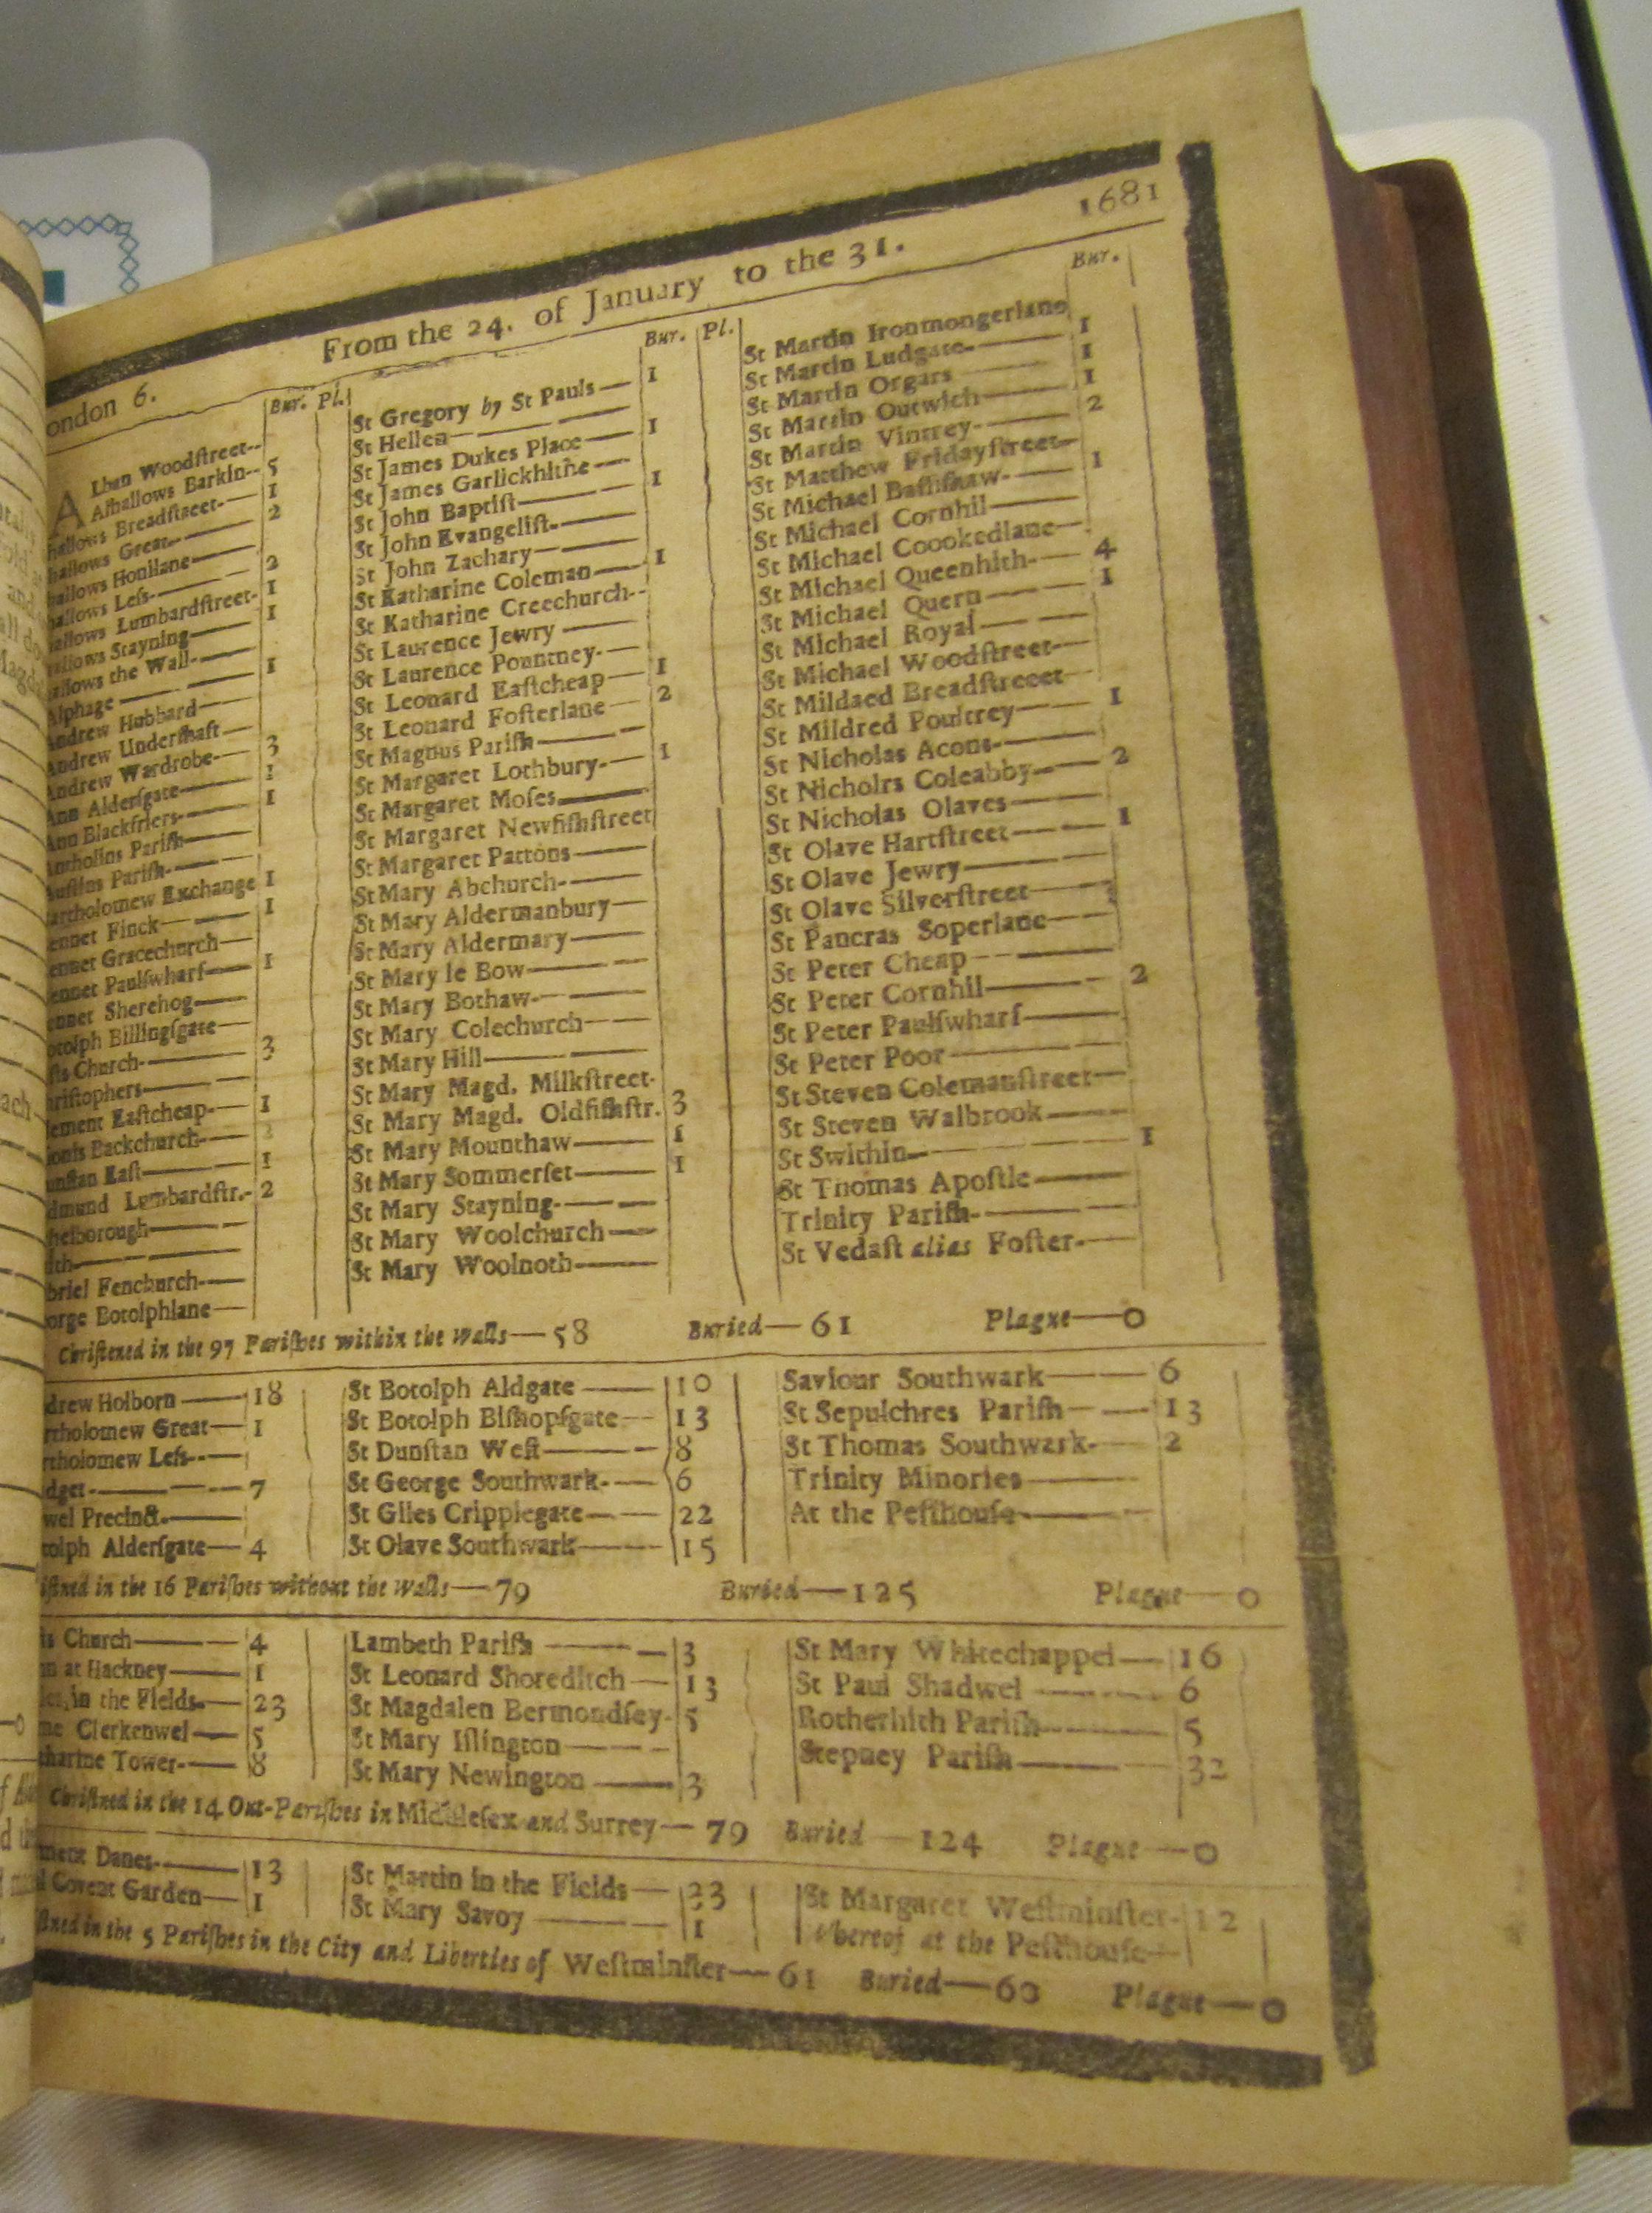 1681
From the 24. of January to the 31.
ondon 6.
Bur. Pl.
A Lban Woodſtreet--
Alhallows Barkin-- 5
hallows Breadſtreet-- 1
hallows Great-- 2
hallows Honilane--
hallows Leſs-- 2
allows Lumbardſtreet- 1
allows Stayning-- 1
allows the Wall--
Alphage-- 1
Andrew Hubbard--
Andrew Underſhaft--
Andrew Wardrobe-- 3
Ann Alderſgate-- 1
Ann Blackfriers-- 1
Antholins Pariſh--
Auſtins Pariſh--
artholomew Exchange 1
ennet Finck-- 1
ennet Gracechurch--
ennet Paulſwharf-- 1
ennet Sherehog--
otolph Billingſgate--
ſts Church-- 3
hriſtophers--
lement Eaſtcheap-- 1
ionis Backchurch--
unſtan Eaſt-- 1
dmund Lumbardſtr.- 2
helborough--
lth--
briel Fenchurch--
orge Botolphlane--
Bur. Pl.
St Gregory by St Pauls-- 1
St Hellen--
St James Dukes Place-- 1
St James Garlickhithe--
St John Baptiſt-- 1
St John Evangeliſt--
St John Zachary--
St Katharine Coleman-- 1
St Katharine Creechurch--
St Laurence Jewry--
St Laurence Pountney--
St Leonard Eaſtcheap-- 1
St Leonard Foſterlane-- 2
St Magnus Pariſh--
St Margaret Lothbury-- 1
St Margaret Moſes--
St Margaret Newfiſhſtreet
St Margaret Pattons--
St Mary Abchurch--
St Mary Aldermanbury--
St Mary Aldermary--
St Mary le Bow--
St Mary Bothaw--
St Mary Colechurch--
St Mary Hill--
St Mary Magd. Milkſtreet-
St Mary Magd. Oldfiſhſtr. 3
St Mary Mounthaw-- 1
St Mary Sommerſet-- 1
St Mary Stayning--
St Mary Woolchurch--
St Mary Woolnoth--
Bur.
St Martin Ironmongerlane
St Martin Ludgate-- 1
St Martin Orgars-- 1
St Martin Outwich-- 1
St Martin Vintrey-- 2
St Matthew Fridayſtreet--
St Michael Baſſiſhaw-- 1
St Michael Cornhil--
St Michael Coookedlane--
St Michael Queenhith-- 4
St Michael Quern-- 1
St Michael Royal--
St Michael Woodſtreet--
St Mildaed Breadſtreeet--
St Mildred Poultrey-- 1
St Nicholas Acons--
St Nicholrs Coleabby-- 2
St Nicholas Olaves--
St Olave Hartſtreet-- 1
St Olave Jewry--
St Olave Silverſtreet--
St Pancras Soperlane--
St Peter Cheap--
St Peter Cornhil-- 2
St Peter Paulſwharf--
St Peter Poor--
St Steven Colemanſtreet--
St Steven Walbrook--
St Swithin-- 1
St Thomas Apoſtle--
Trinity Pariſh--
St Vedaſt alias Foſter--
Chriſtened in the 97 Pariſhes within the Walls—58 Buried—61 Plague—0
drew Holborn—18
rtholomew Great—1
rtholomew Leſs--
dget—7
wel Precinct--
tolph Alderſgate—4
St Botolph Aldgate—10
St Botolph Biſhopſgate—13
St Dunſtan Weſt—8
St George Southwark—6
St Giles Cripplegate—22
St Olave Southwark—15
Saviour Southwark—6
St Sepulchres Pariſh—13
St Thomas Southwark—2
Trinity Minories—
At the Peſthouſe—
iſtned in the 16 Pariſhes without the Walls—79 Buried—125 Plague—0
ts Church—4
n at Hackney—1
les in the Fields—23
me Clerkenwel—5
tharine Tower—8
Lambeth Pariſh—3
St Leonard Shoreditch—13
St Magdalen Bermondſey-5
St Mary Iſlington—
St Mary Newington—3
St Mary Whitechappel—16
St Paul Shadwel—6
Rotherhith Pariſh—5
Stepney Pariſh—32
Chriſtned in the 14 Out-Pariſhes in Middleſex and Surrey—79 Buried—124 Plague—0
ment Danes—13
l Covent Garden—1
St Martin in the Fields—33
St Mary Savoy—1
St Margaret Weſtminſter-12
Whereof at the Peſthouſe—
ſtned in the 5 Pariſhes in the City and Liberties of Weſtminſter—61 Buried—60 Plague—0